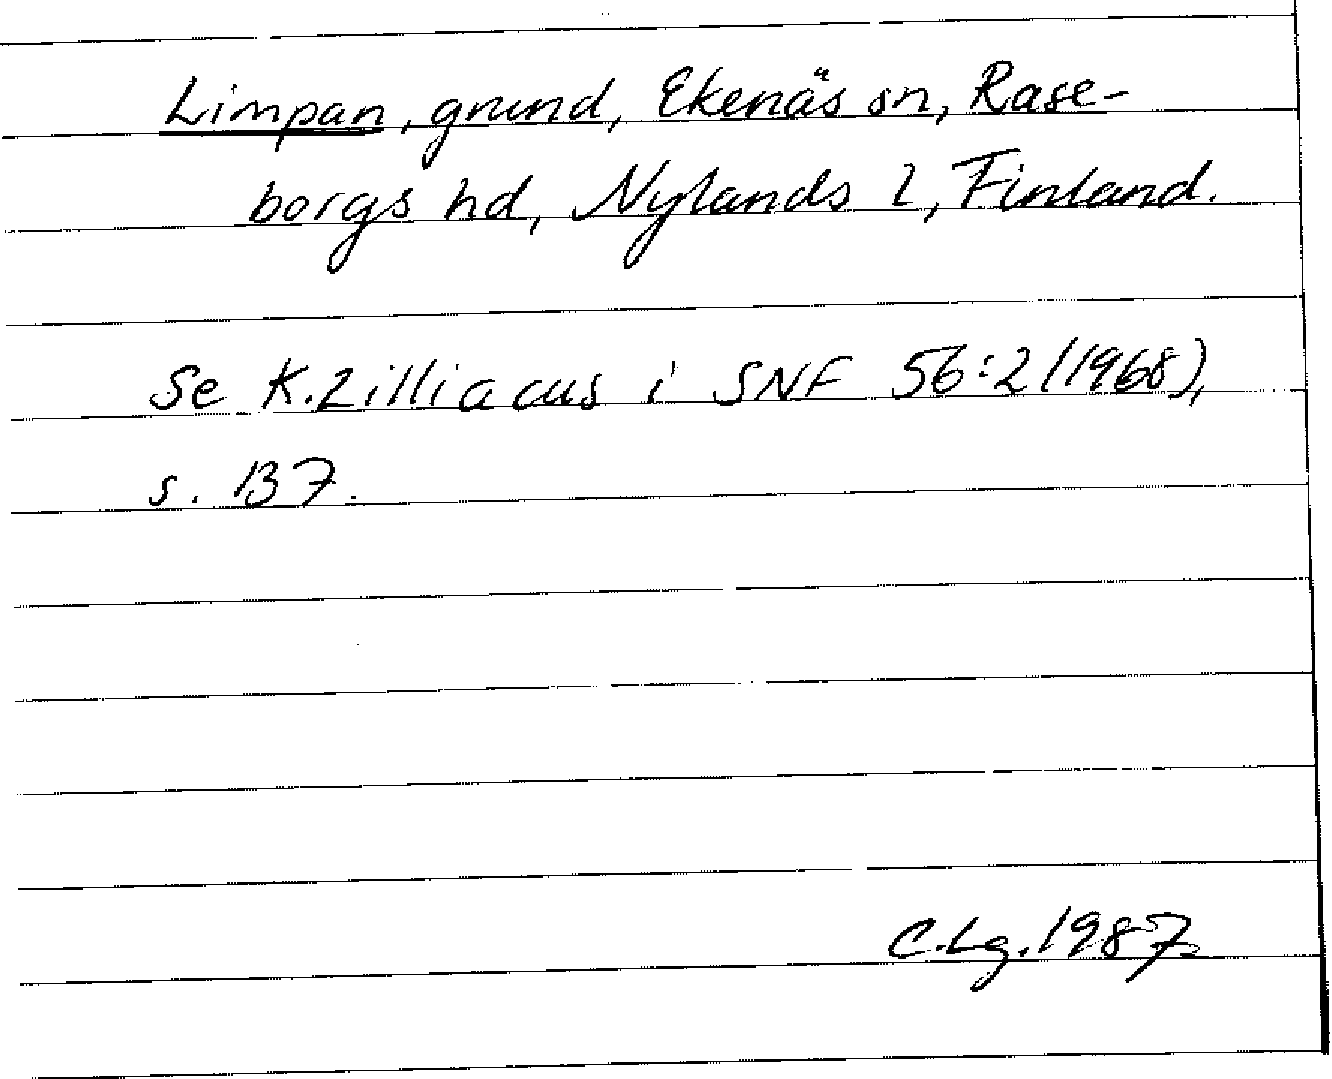 Limpan, grund, Ekenäs sn, Rase-
borgs hd, Nylands l, Finland.
Se K. Zilliacus i SNF 56:2 (1968),
s. 137.
C.Lg. 1987.